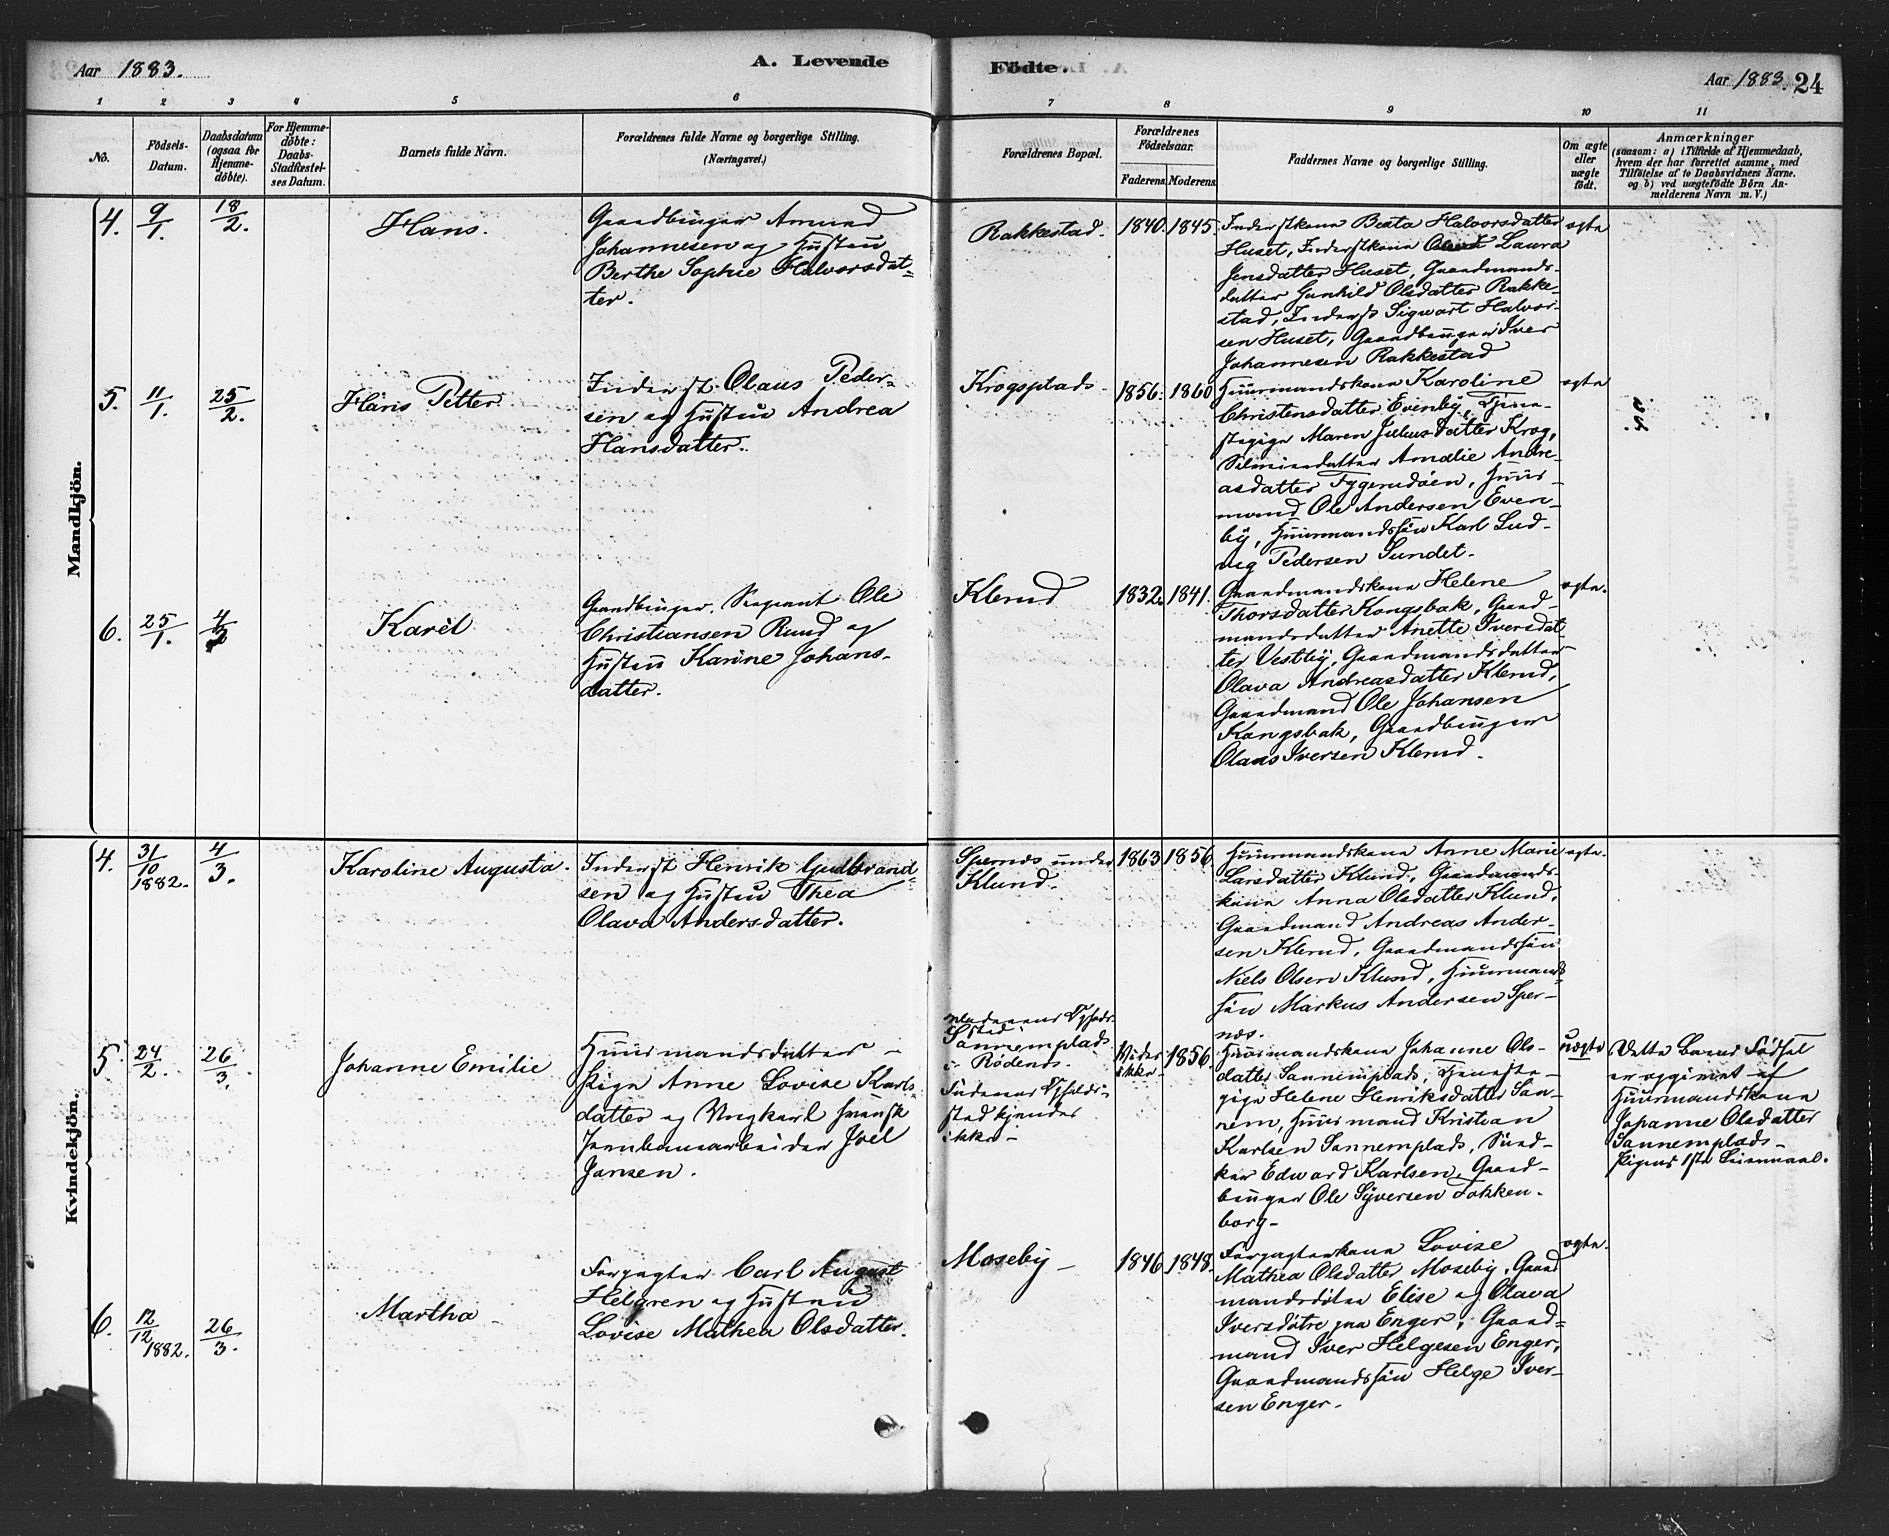 Aar 1883.
A. Levende
Fødte.
Aar 1883.
24
1 2 3 4 5 6 7 8 9 10 11
No.
Födsels-
Datum.
Daabsdatum
(ogsaa for
Hjemme-
döbte).
For Hjemme-
döbte:
Daabs-
Stadfæstel-
ses Datum.
Barnets fulde Navn.
Forældrenes fulde Navne og borgerlige Stilling.
(Næringsvei.)
Forældrenes Bopæl.
Forældrenes
Födselsaar.
Faderens. Moderens.
Faddernes Navne og borgerlige Stilling.
Om ægte
eller
uægte
født.
Anmærkninger
(saasom: a) i Tilfælde af Hjemmedaab,
hvem der har forrettet samme, med
Tilföielse af to Daabsvidners Navne.
og b) ved uægtefödte Börn An-
melderens Navn m. V.)
Mandkjön.
4. 9/1. 18/2. Hans.
Gaardbruger Amund
Johannesen og Hustru
Berthe Sophie Halvorsdat-
ter.
Rakkestad. 1840. 1845.
Inderstkone Beata Halvorsdatter
Huset, Inderstkone Laura
Jensdatter Huset, Gaardmands-
datter Gunhild Olsdatter Rakke-
stad, Inderst Sigwart Halvor-
sen Huset, Gaardbruger Iver
Johannesen Rakkestad
ægte
5. 11/1. 25/2. Hans Petter
Inderst Olaus Peder-
sen og Hustru Andrea
Hansdatter.
Krogsplads 1856. 1860
Huusmandskone Karoline
Christensdatter Evenby, Tjene-
stepige Maren Juliusdatter Krog,
Amalie Andre-
asdatter Tygerudöen, Huus-
mand Ole Andersen Even-
by, Huusmandssön Karl Lud-
vig Pedersen Sundet.
ægte
6. 25/1. 4/3 Karèl
Gaardbruger, Sergeant Ole
Christiansen Ruud og
Hustru Karine Johans-
datter.
Klerud 1832. 1841.
Gaardmandskone Helene
Thorsdatter Kongsbak, Gaard-
mandsdatter Anette Iversdat-
ter Vestby, Gaardmandsdatter
Olava Andreasdatter Klerud,
Gaardmand Ole Johansen
Kongsbak, Gaardbruger
Olaus Iversen Klerud.
ægte.
Kvindekjön.
4. 31/10 1882. 4/3. Karoline Augusta.
Inderst Henrik Gudbrand-
sen og Hustru Thea
Olava Andersdatter.
Spernes under
Klund. 1863 1856
Huusmandskone Anne Marie
Larsdatter Klund, Gaardmands-
kone Anna Olsdatter Klund,
Gaardmand Andreas Ander-
sen Klerud, Gaardmandssön
Niels Olsen Klund, Huusmands-
sön Markus Andersen Sper-
nes.
ægte.
5. 24/2. 26/3. Johanne Emilie
Huusmandsdatter -
Pige Anne Lovise Karls-
datter og Ungkarl svensk
Jernbanearbeider Joel
Jansen.
Moderens Opholds-
sted
Sannemplads
i Rödenes.
Faderens Opholds-
sted kjendes
ikke-
Vides
ikke- 1856
Huusmandskone Johanne Ols-
datter Sannemplads, Tjeneste-
pige Helene Henriksdatter San-
nem, Huusmand Kristian
Karlsen Sannemplads, Sned-
ker Edward Karlsen, Gaard-
bruger Ole Syversen Tokken-
borg-
uægte
Dette Barns Födsel
er opgivet af
Huusmandskone
Johanne Olsdatter
Sannemplads-
Pigens 1ste Leiermaal.
6. 12/12 1882. 26/3. Martha
Forpagter Carl August
Helgren og Hustru
Lovise Mathea Olsdatter.
Moseby 1846 1848.
Forpagterkone Lovise
Mathea Olsdatter Moseby, Gaard
mandsdötre Elise og Olava
Iversdötre paa Enger, Gaard-
mand Iver Helgesen Enger,
Gaardmandssön Helge Iver-
sen Enger.
ægte.